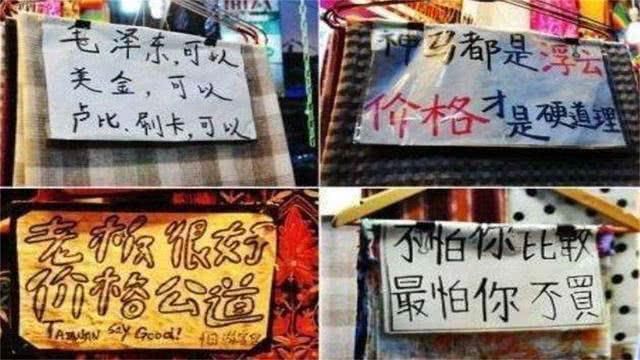 毛泽东,可以
美金,可以
卢比.刷卡,可以
神马都是浮云
价格才是硬道理
老板很好
价格公道
TAIWAN say Good!
不怕你比較
最怕你不買